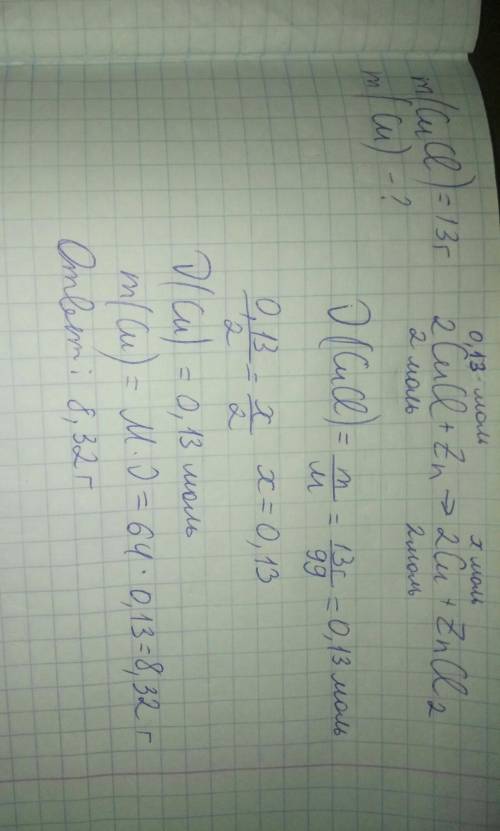 m(CuCl) = 13г
m(Cu) - ?
0,13 моль x моль
2CuCl + Zn → 2Cu + ZnCl2
2 моль 2 моль
ν(CuCl) = m/M = 13г/99 = 0,13 моль
0,13/2 = x/2 x = 0,13
ν(Cu) = 0,13 моль
m(Cu) = M · ν = 64 · 0,13 = 8,32 г
Ответ: 8,32 г